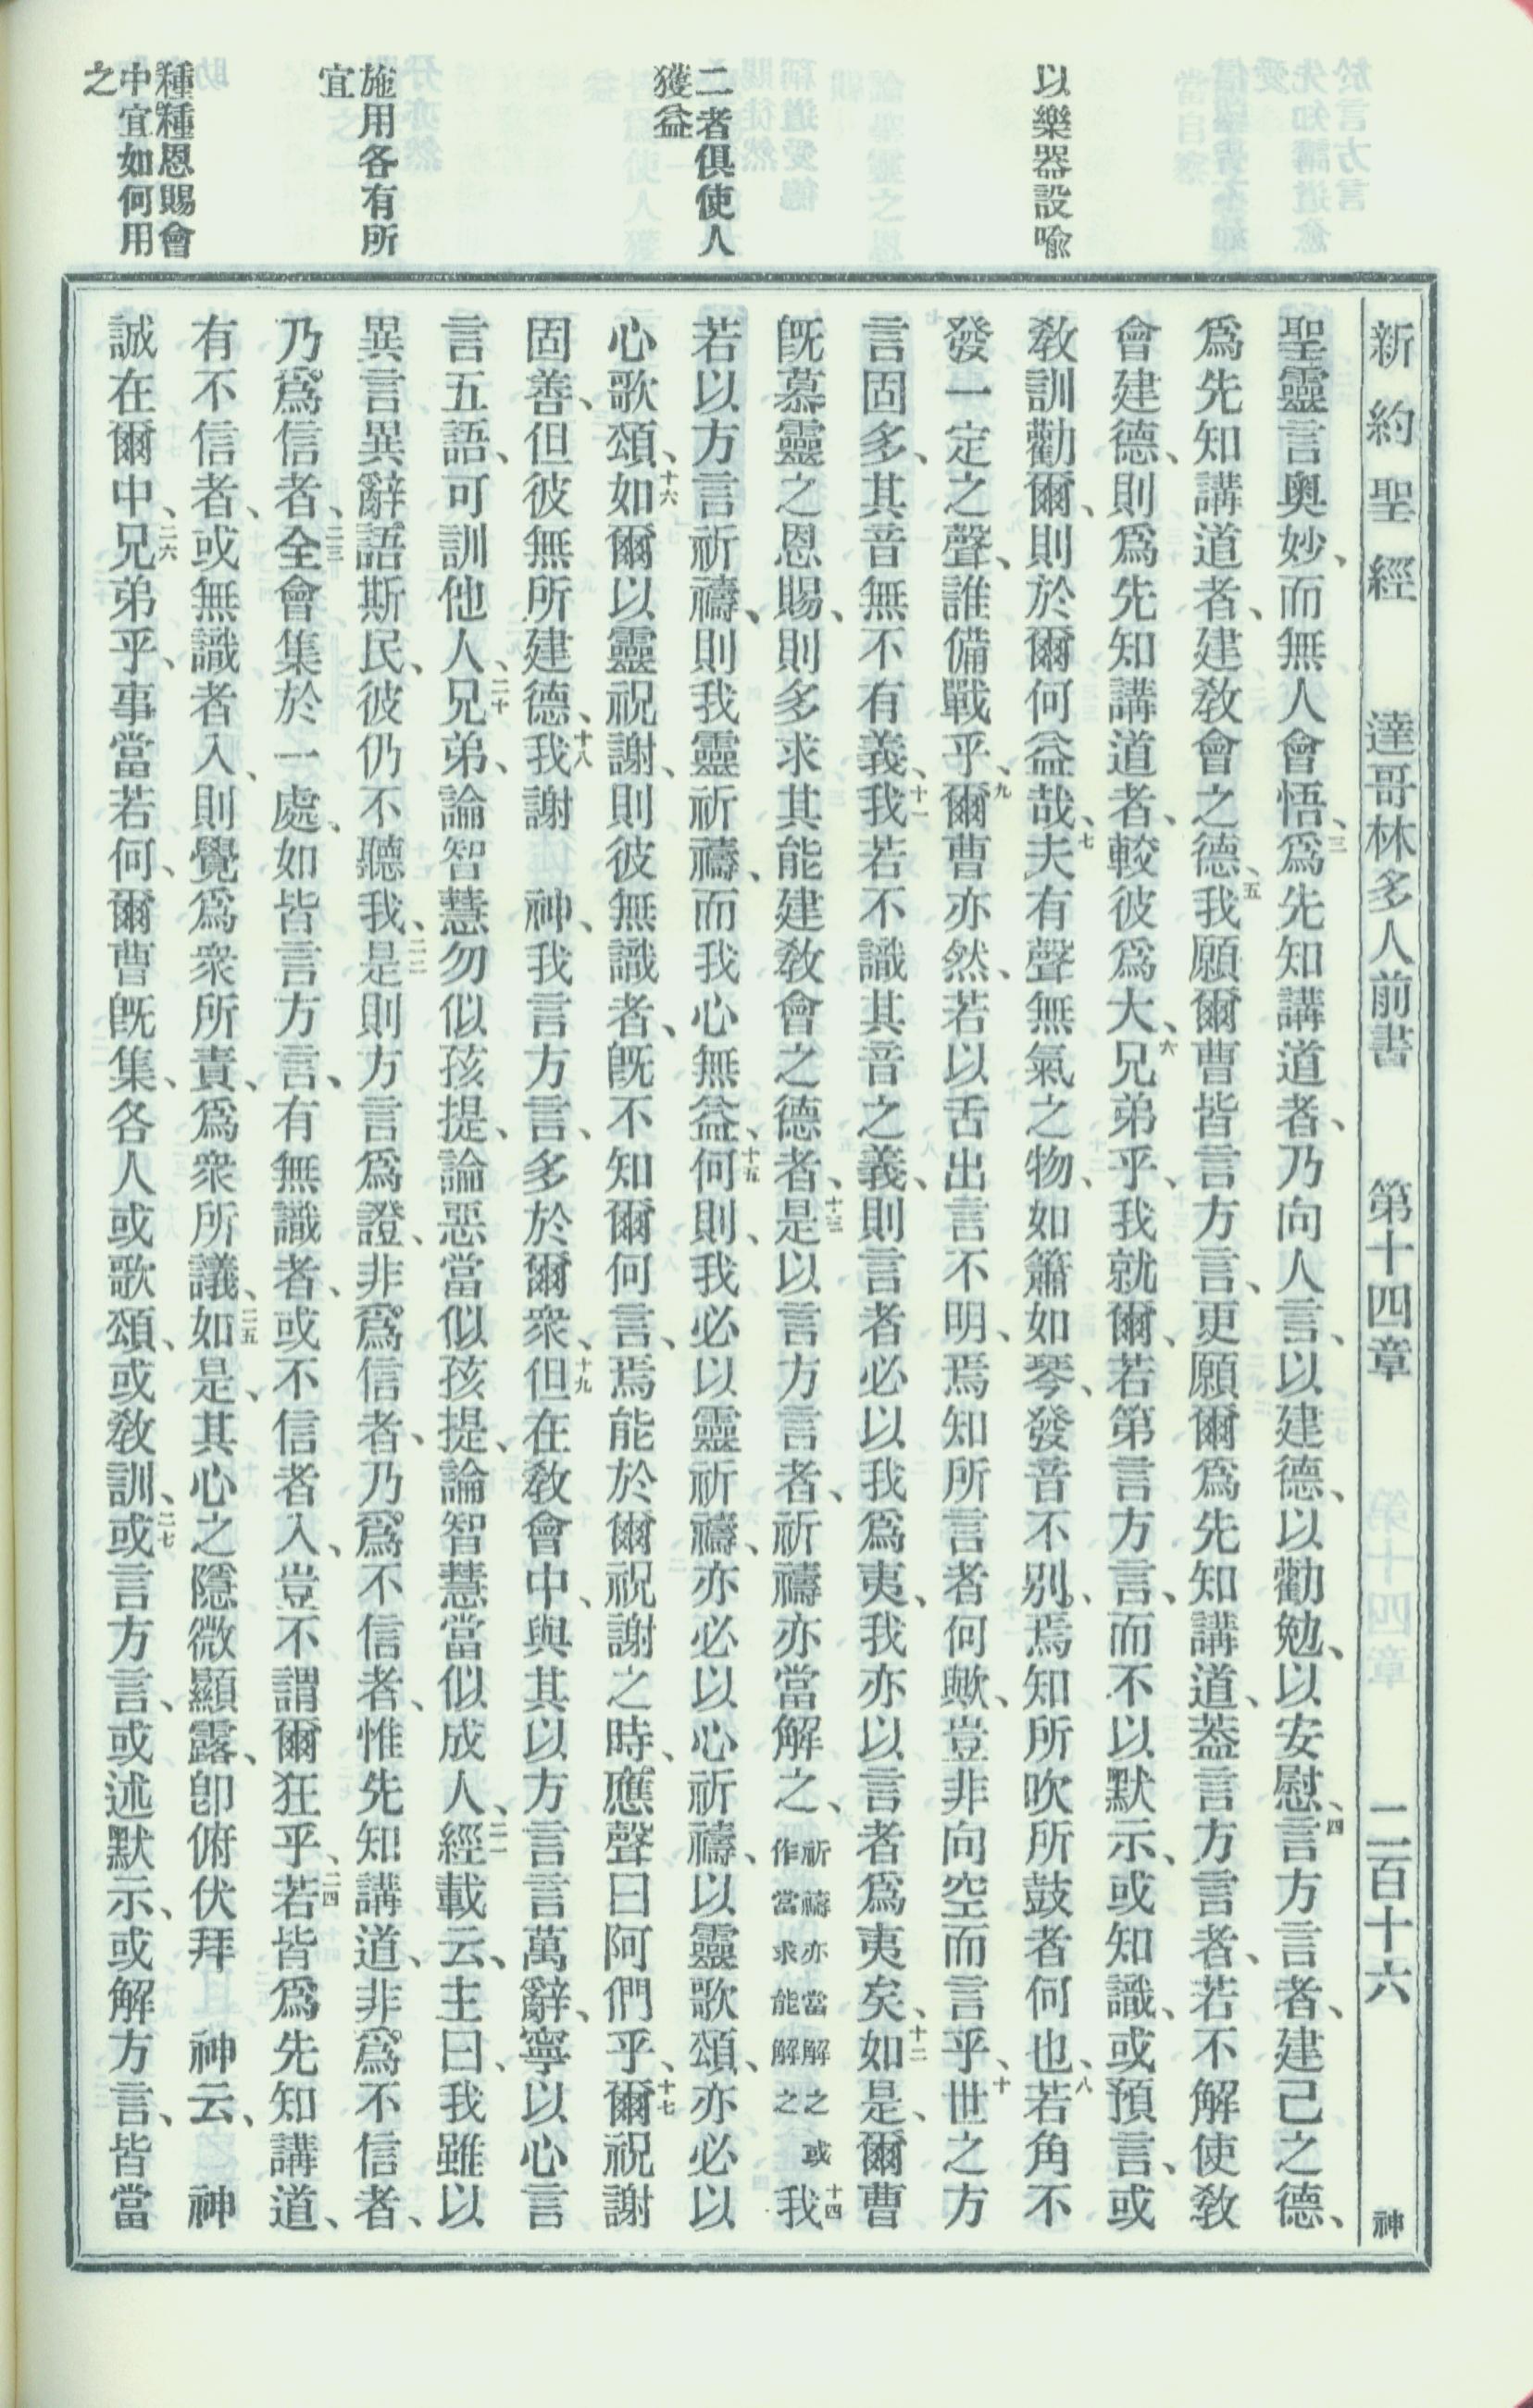 新約聖經 達哥林多人前書 第十四章 二百十六 神
以樂器設喩
二者俱使人
獲益
施用各有所
宜
種種恩賜會
中宜如何用
之
聖靈言奧妙、而無人會悟、三爲先知講道者、乃向人言、以建德、以勸勉、以安慰、四言方言者、建己之德、
爲先知講道者、建敎會之德、五我願爾曹皆言方言、更願爾爲先知講道、蓋言方言者、若不解使敎
會建德、則爲先知講道者、較彼爲大、六兄弟乎、我就爾、若第言方言、而不以默示、或知識、或預言、或
敎訓勸爾、則於爾何益哉、七夫有聲無氣之物、如簫如琴、發音不別、焉知所吹所鼓者何也、八若角不
發一定之聲、誰備戰乎、九爾曹亦然、若以舌出言不明、焉知所言者何歟、豈非向空而言乎、十世之方
言固多、其音無不有義、十一我若不識其音之義、則言者必以我爲夷、我亦以言者爲夷矣、十二如是、爾曹
旣慕靈之恩賜、則多求其能建敎會之德者、十三是以言方言者、祈禱亦當解之、祈禱亦當解之或作當求能解之十四我
若以方言祈禱、則我靈祈禱、而我心無益、十五何則、我必以靈祈禱、亦必以心祈禱、以靈歌頌、亦必以
心歌頌、十六如爾以靈祝謝、則彼無識者、旣不知爾何言、焉能於爾祝謝之時、應聲曰阿們乎、十七爾祝謝
固善、但彼無所建德、十八我謝 神、我言方言、多於爾衆、十九但在敎會中、與其以方言言萬辭、寧以心言
言五語、可訓他人、二十兄弟、論智慧勿似孩提、論惡當似孩提、論智慧當似成人、二一經載云、主曰、我雖以
異言異辭語斯民、彼仍不聽我、二二是則方言爲證、非爲信者、乃爲不信者、惟先知講道、非爲不信者、
乃爲信者、二三全會集於一處、如皆言方言、有無識者、或不信者入、豈不謂爾狂乎、二四若皆爲先知講道、
有不信者、或無識者入、則覺爲衆所責、爲衆所議、二五如是、其心之隱微顯露、卽俯伏拜 神云、 神
誠在爾中、二六兄弟乎、事當若何、爾曹旣集、各人或歌頌、或敎訓、二七或言方言、或述默示、或解方言、皆當